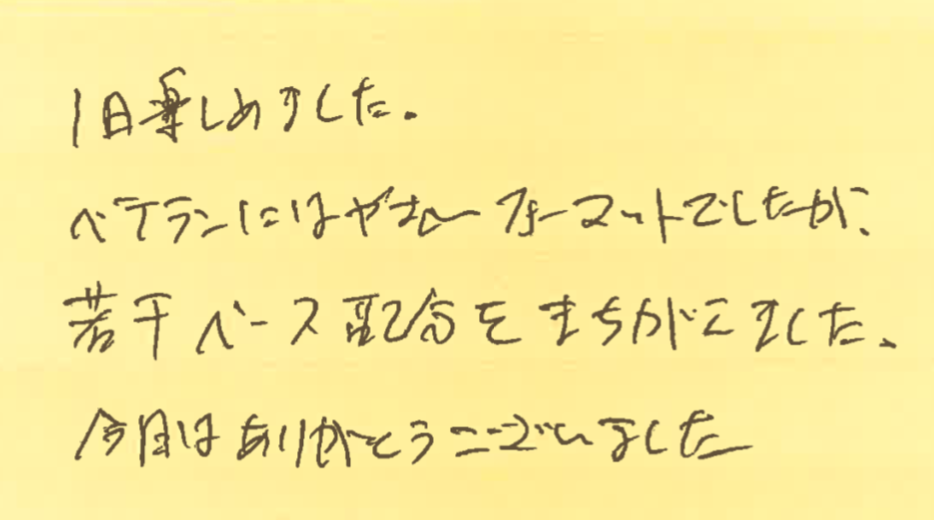 1日楽しめました.
ベテランにはやさしいフォーマットでしたが、
若干ペース配分をまちがえました、
今日はありがとうございました